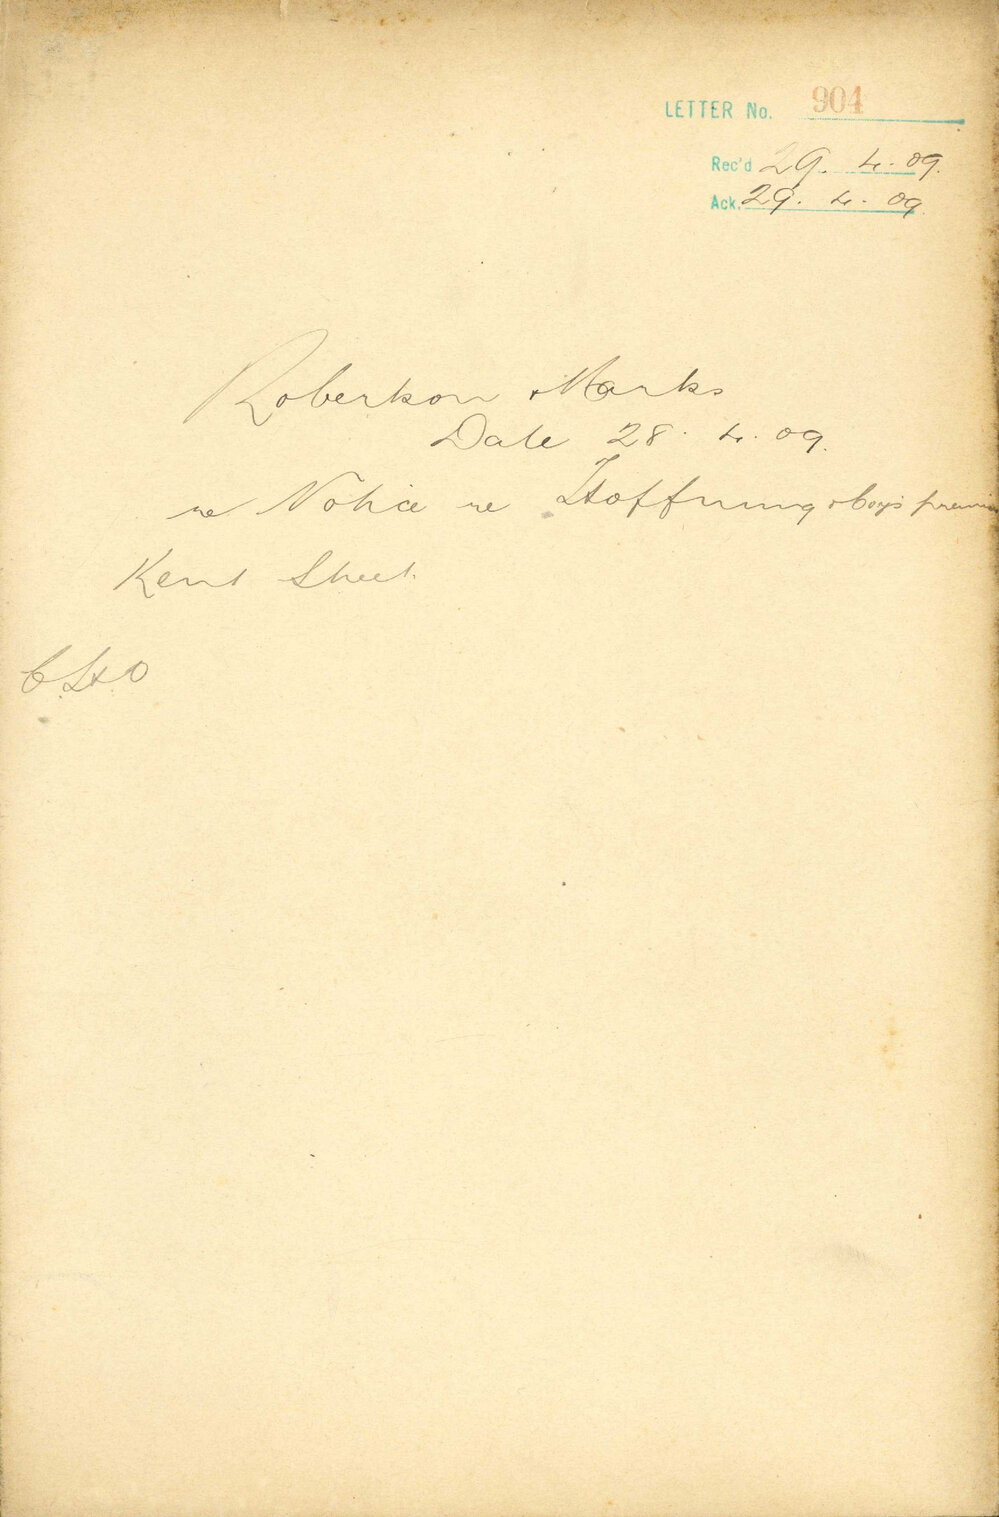 LETTER No. 904
Rec'd 29. 4. 09.
Ack. 29. 4. 09.
Robertson & Marks
Date 28. 4. 09.
re Notice re Hoffnung & Coy's premis
Kent Street.
C.H.O